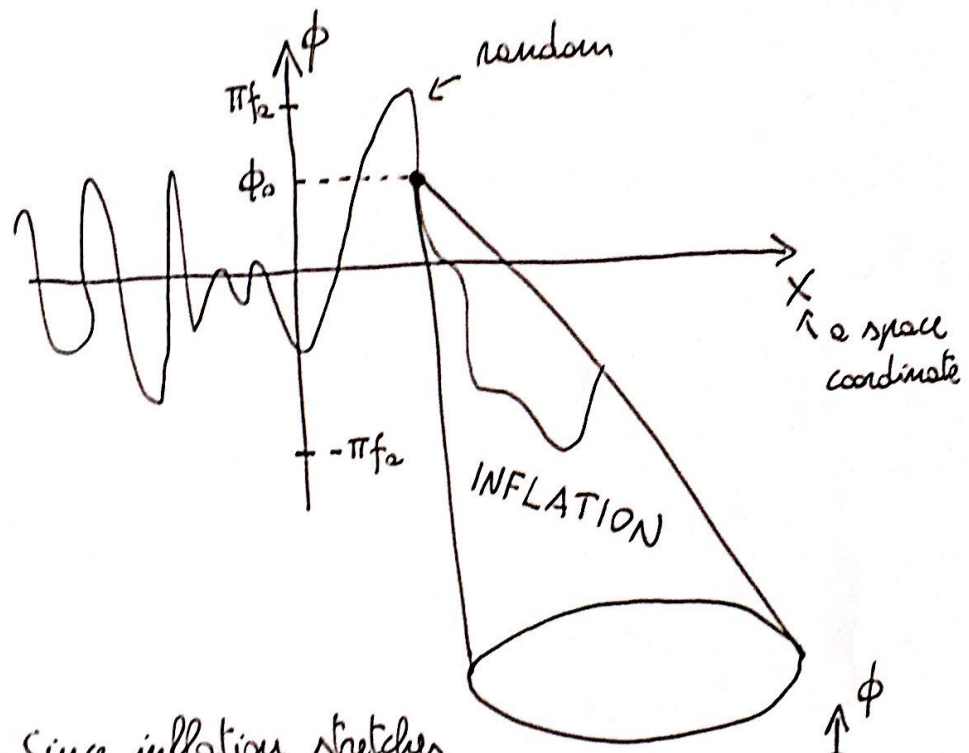 ϕ
random
πfₐ
ϕₒ
X
a space
coordinate
-πfₐ
INFLATION
ϕ
Since inflation stretches